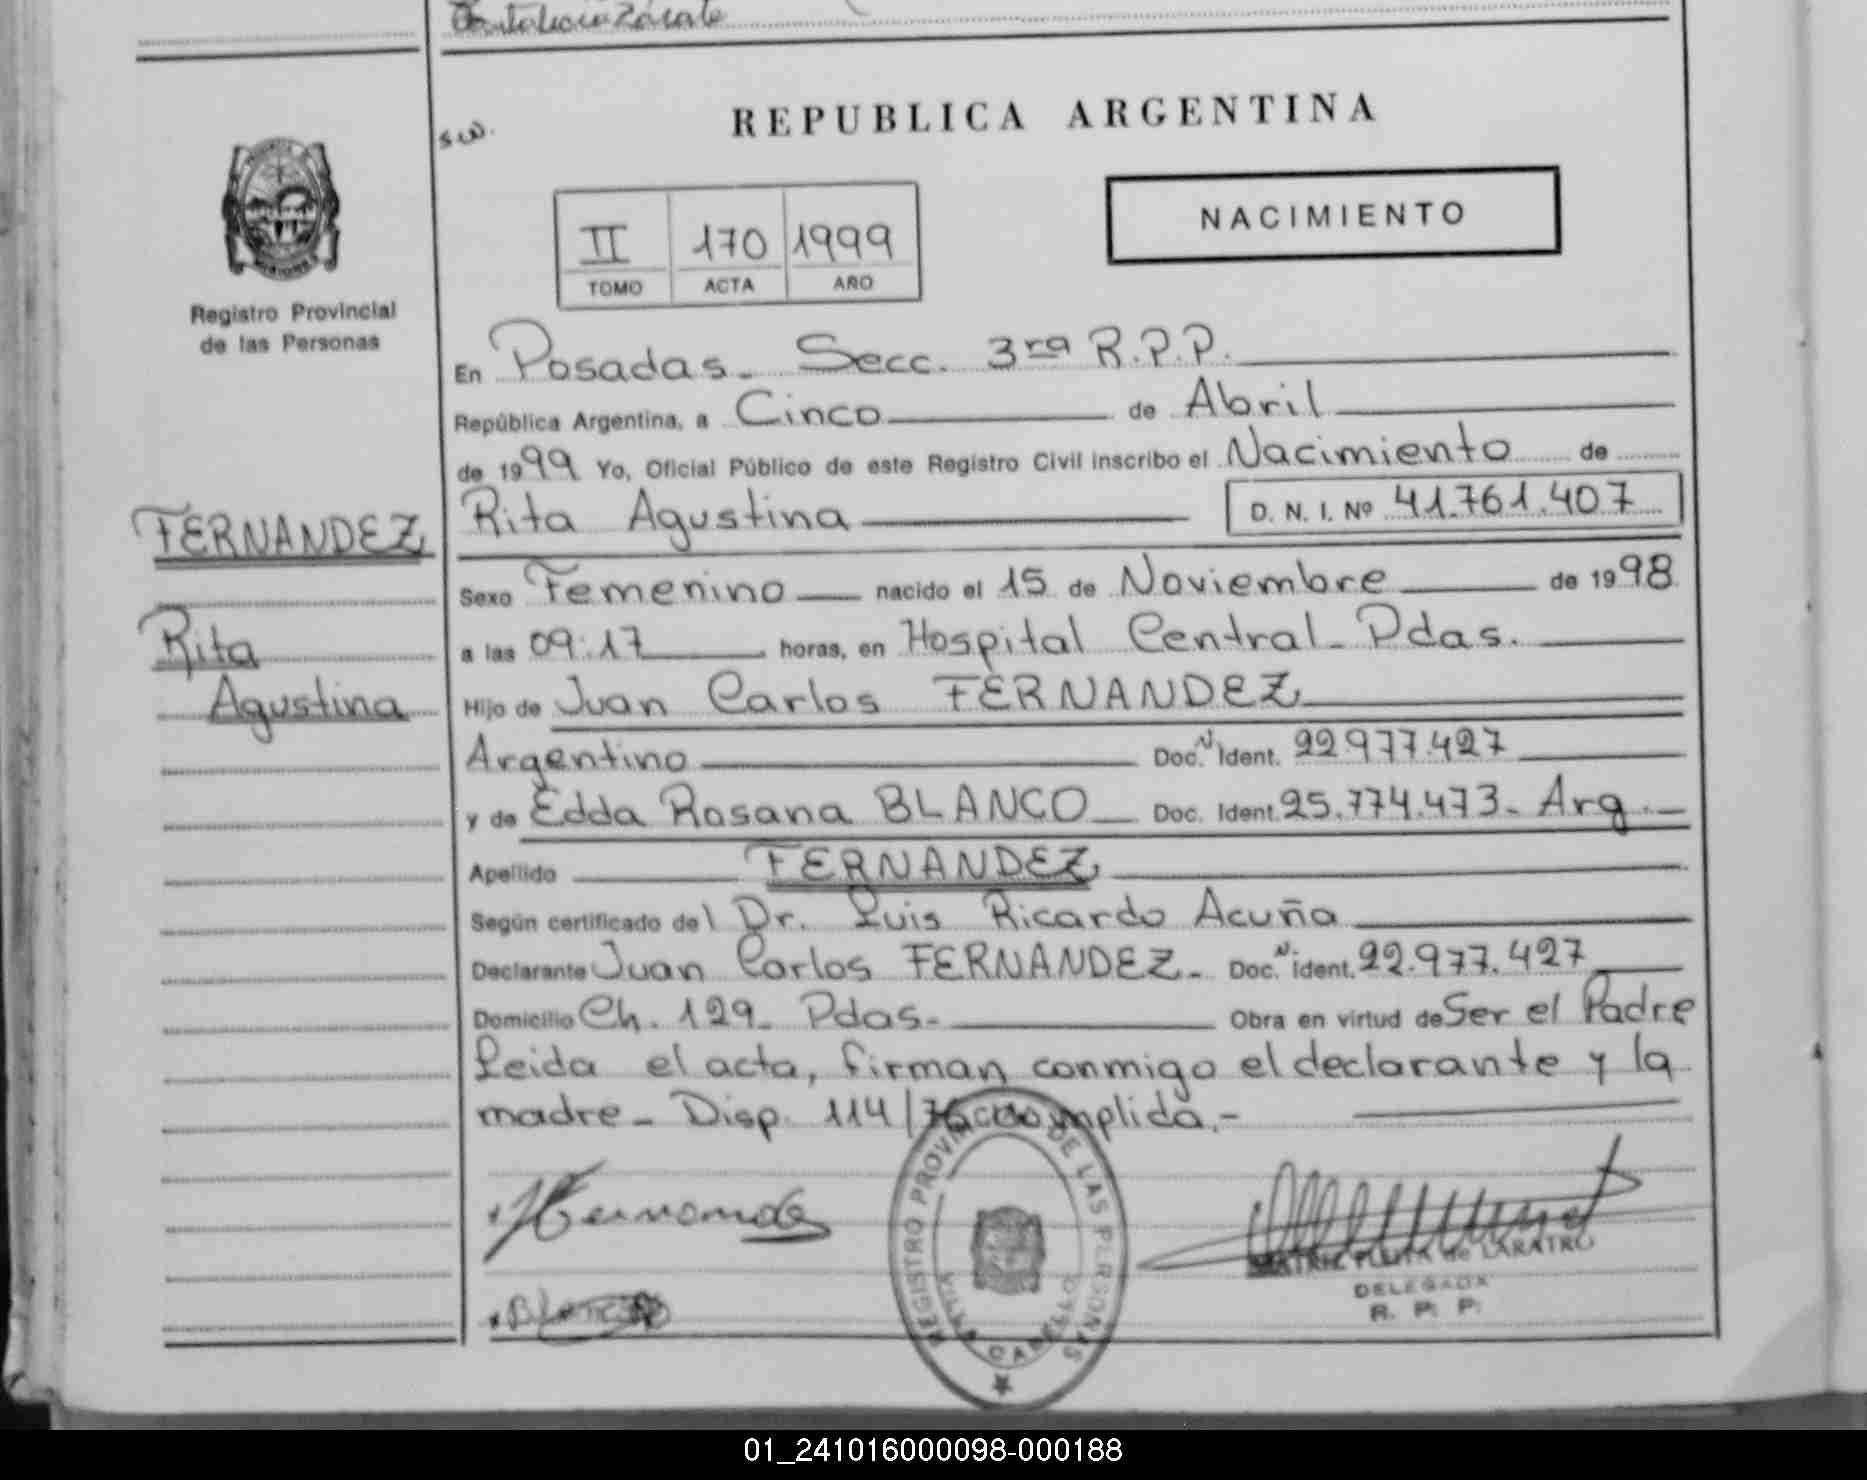 REPUBLICA ARGENTINA
NACIMIENTO
II 170 1999
TOMO ACTA AÑO
Registro Provincial
de las Personas
En Posadas - Secc. 3ra R.P.P.
República Argentina, a Cinco de Abril
de 1999 Yo, Oficial Público de este Registro Civil inscribo el Nacimiento de
Rita Agustina D. N. I. Nº 41.761.407
FERNANDEZ
Rita
Agustina
Sexo Femenino nacido el 15 de Noviembre de 1998
a las 09:17 horas, en Hospital Central - Pdas.
Hijo de Juan Carlos FERNANDEZ
Argentino Doc. N Ident. 22.977.427
y de Edda Rosana BLANCO Doc. Ident. 25.774.473 - Arg.
Apellido FERNANDEZ
Según certificado del Dr. Luis Ricardo Acuña
Declarante Juan Carlos FERNANDEZ - Doc. N ident. 22.977.427
Domicilio Ch. 129 - Pdas. - Obra en virtud de Ser el Padre
Leida el acta, firman conmigo el declarante y la
madre - Disp. 114/ cumplida.-
REGISTRO PROVINCIAL DE LAS PERSONAS
VILLA CABELLO
de LARATRO
DELEGADA
R. P. P.
01_241016000098-000188